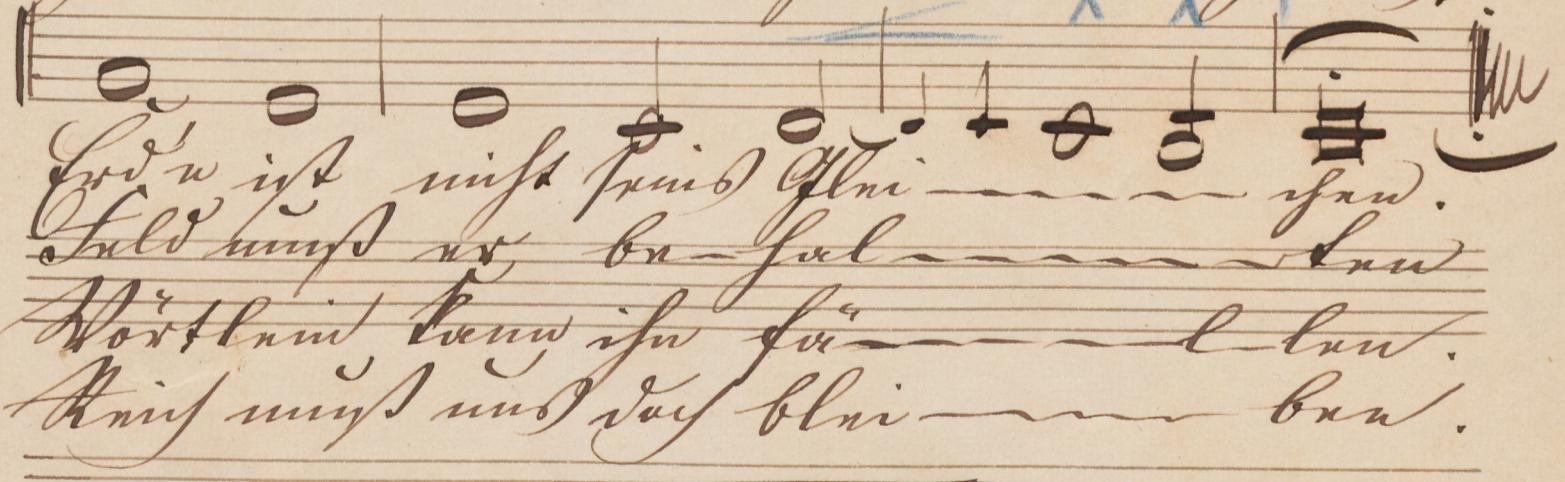 Erd'n ist nicht seins Glei - - - - chen.
Feld muß er be - hal - - - - - ten
Wörtlein kann ihn fä - - - l - len.
Reich muß uns doch blei - - - ben.